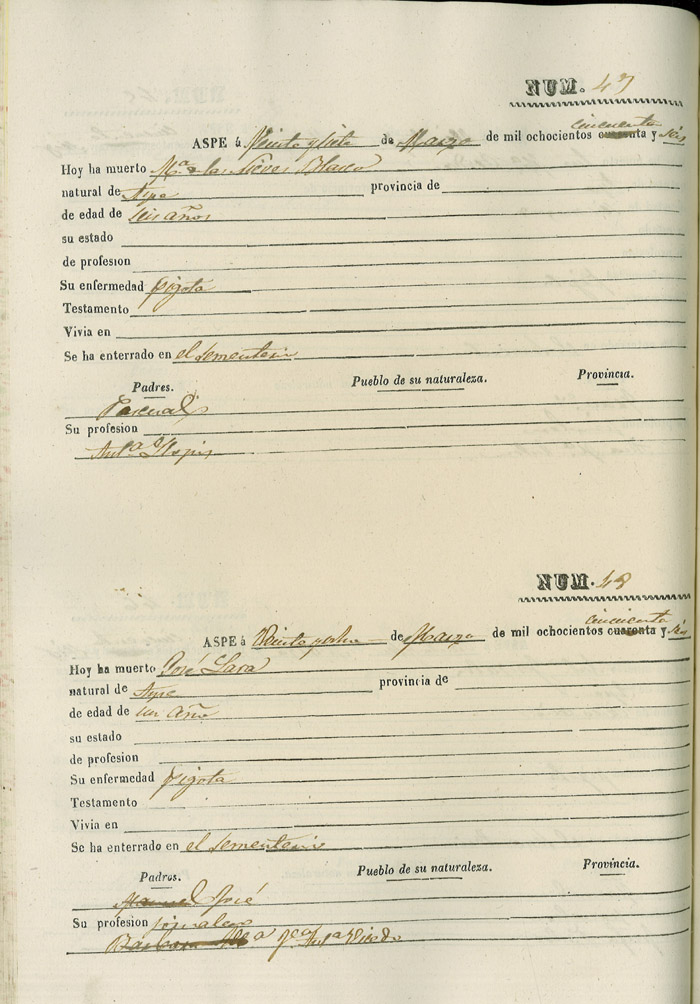 NUM. 47
cincuenta
ASPE á Veinte y siete de Marzo de mil ochocientos cuarenta y seis
Hoy ha muerto Mª de las Nieves Blasco
natural de Aspe provincia de
de edad de seis años
su estado
de profesion
Su enfermedad pigota
Testamento
Vivia en
Se ha enterrado en el sementerio
Padres. Pueblo de su naturaleza. Provincia.
Pascual
Su profesion
Antª
NUM. 48
cincuenta
ASPE á Veinte y ocho de Marzo de mil ochocientos cuarenta y seis
Hoy ha muerto José Lara
natural de Aspe provincia de
de edad de un año
su estado
de profesion
Su enfermedad pigota
Testamento
Vivia en
Se ha enterrado en el sementerio
Padres. Pueblo de su naturaleza. Provincia.
Manuel José
Su profesion jornalero
Antª